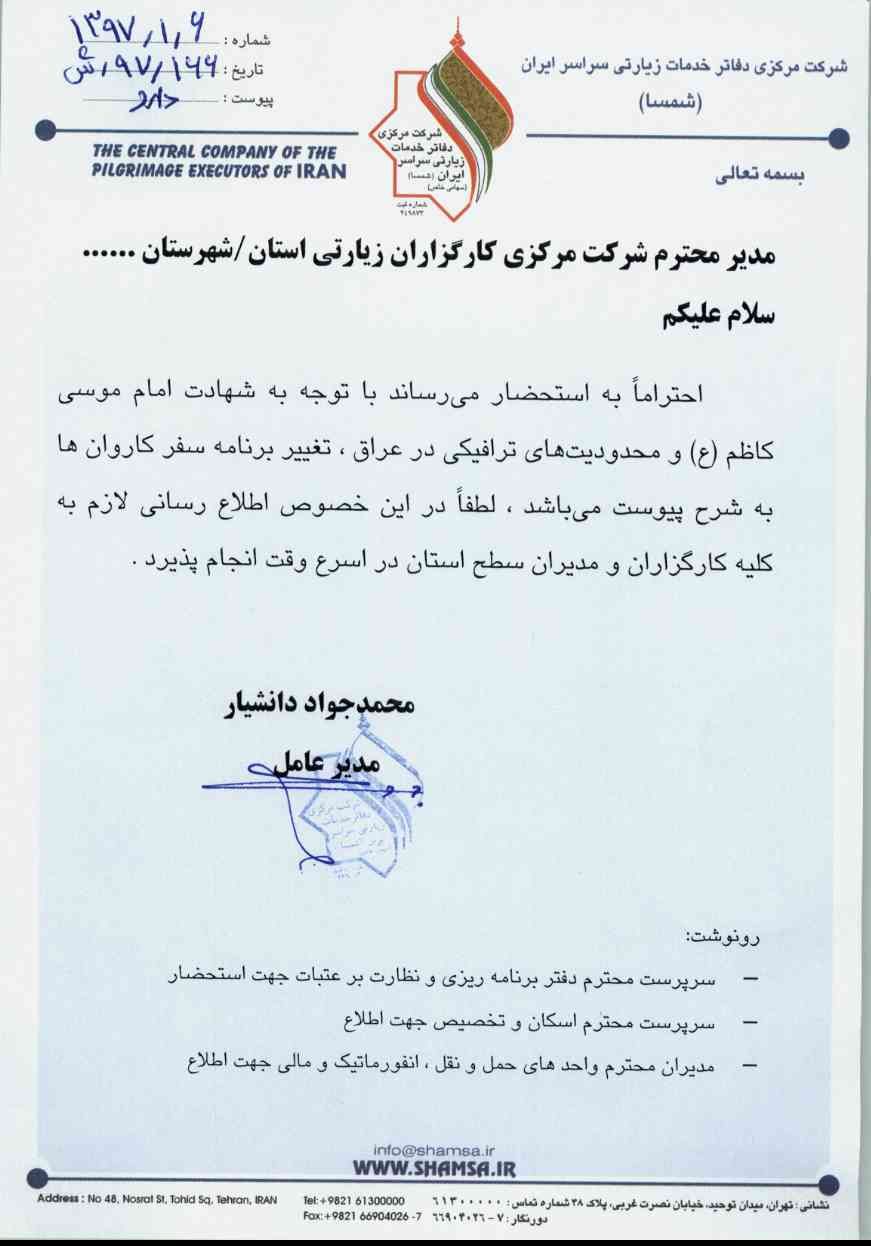 شماره : ۱۳۹۷/۱/۶
تاریخ : ۹۷/۱۶۶/ش
پیوست : دارد
شرکت مرکزی دفاتر خدمات زیارتی سراسر ایران
(شمسا)
شرکت مرکزی
دفاتر خدمات
زیارتی سراسر
ایران (شمسا)
(سهامی خاص)
شماره ثبت
۲۴۹۸۷۳
THE CENTRAL COMPANY OF THE
PILGRIMAGE EXECUTORS OF IRAN
بسمه تعالی
مدیر محترم شرکت مرکزی کارگزاران زیارتی استان/شهرستان ......
سلام علیکم
احتراماً به استحضار می‌رساند با توجه به شهادت امام موسی
کاظم (ع) و محدودیت‌های ترافیکی در عراق ، تغییر برنامه سفر کاروان ها
به شرح پیوست می‌باشد ، لطفاً در این خصوص اطلاع رسانی لازم به
کلیه کارگزاران و مدیران سطح استان در اسرع وقت انجام پذیرد .
محمدجواد دانشیار
مدیر عامل
شرکت مرکزی
دفاتر خدمات
زیارتی سراسر
رونوشت:
– سرپرست محترم دفتر برنامه ریزی و نظارت بر عتبات جهت استحضار
– سرپرست محترم اسکان و تخصیص جهت اطلاع
– مدیران محترم واحد های حمل و نقل ، انفورماتیک و مالی جهت اطلاع
info@shamsa.ir
WWW.SHAMSA.IR
Address : No 48, Nosrat St, Tohid Sq, Tehran, IRAN
Tel:+9821 61300000
Fax:+9821 66904026 -7
نشانی : تهران، میدان توحید، خیابان نصرت غربی، پلاک ۴۸ شماره تماس : ۶۱۳۰۰۰۰۰
دورنگار : ۷ - ۶۶۹۰۴۰۲۶